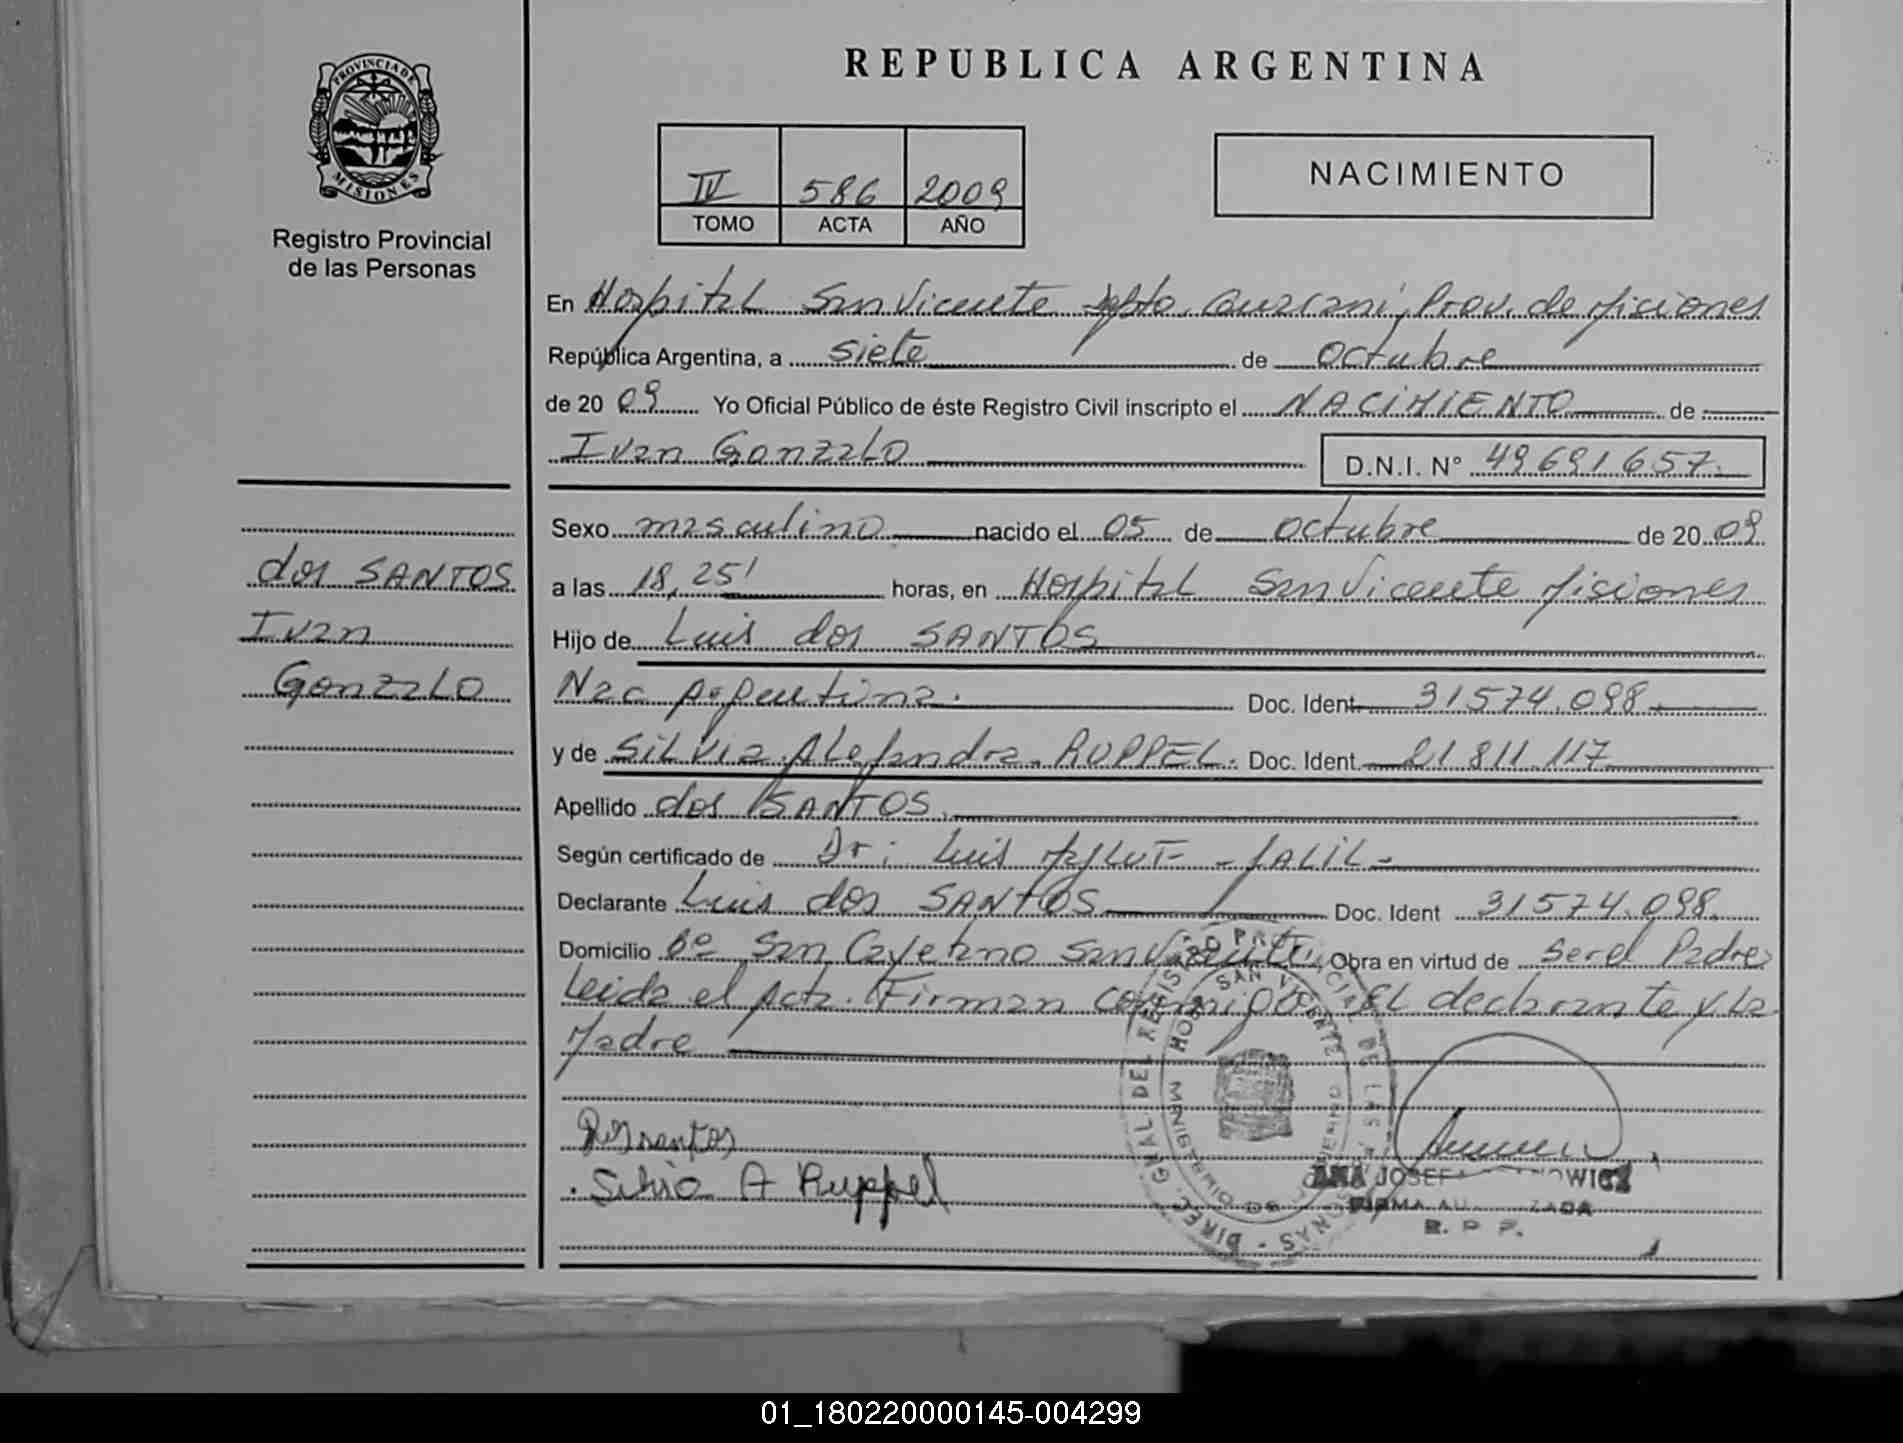 REPUBLICA ARGENTINA
PROVINCIA DE MISIONES
Registro Provincial
de las Personas
IV 586 2009
TOMO ACTA AÑO
NACIMIENTO
En Hospital San Vicente Dpto. Guaraní, Prov. de Misiones
República Argentina, a siete de octubre
de 20 09 Yo Oficial Público de éste Registro Civil inscripto el NACIMIENTO de
Ivan Gonzalo
D.N.I. N° 49691657.
dos SANTOS
Ivan
Gonzalo
Sexo masculino nacido el 05 de octubre de 20 09
a las 18,25' horas, en Hospital San Vicente Misiones
Hijo de Luis dos SANTOS
Nac Argentina. Doc. Ident. 31574.098.
y de Silvia Alejandra RUPPEL. Doc. Ident. 21811.117
Apellido dos SANTOS.
Según certificado de Dr: Luis JALIL-
Declarante Luis dos SANTOS Doc. Ident 31574.098.
Domicilio Bº San Cayetano San Vicente, Obra en virtud de ser el Padre
Leida el Acta. Firman conmigo El declarante y la
Madre
Dos santos
Silvia A Ruppel
DIREC. GRAL. DEL REGISTRO PROVINCIAL DE LAS PERSONAS
HOSP. SAN VICENTE
MINISTERIO DE GOBIERNO
ANA JOSEF
R. P. P.
01_180220000145-004299